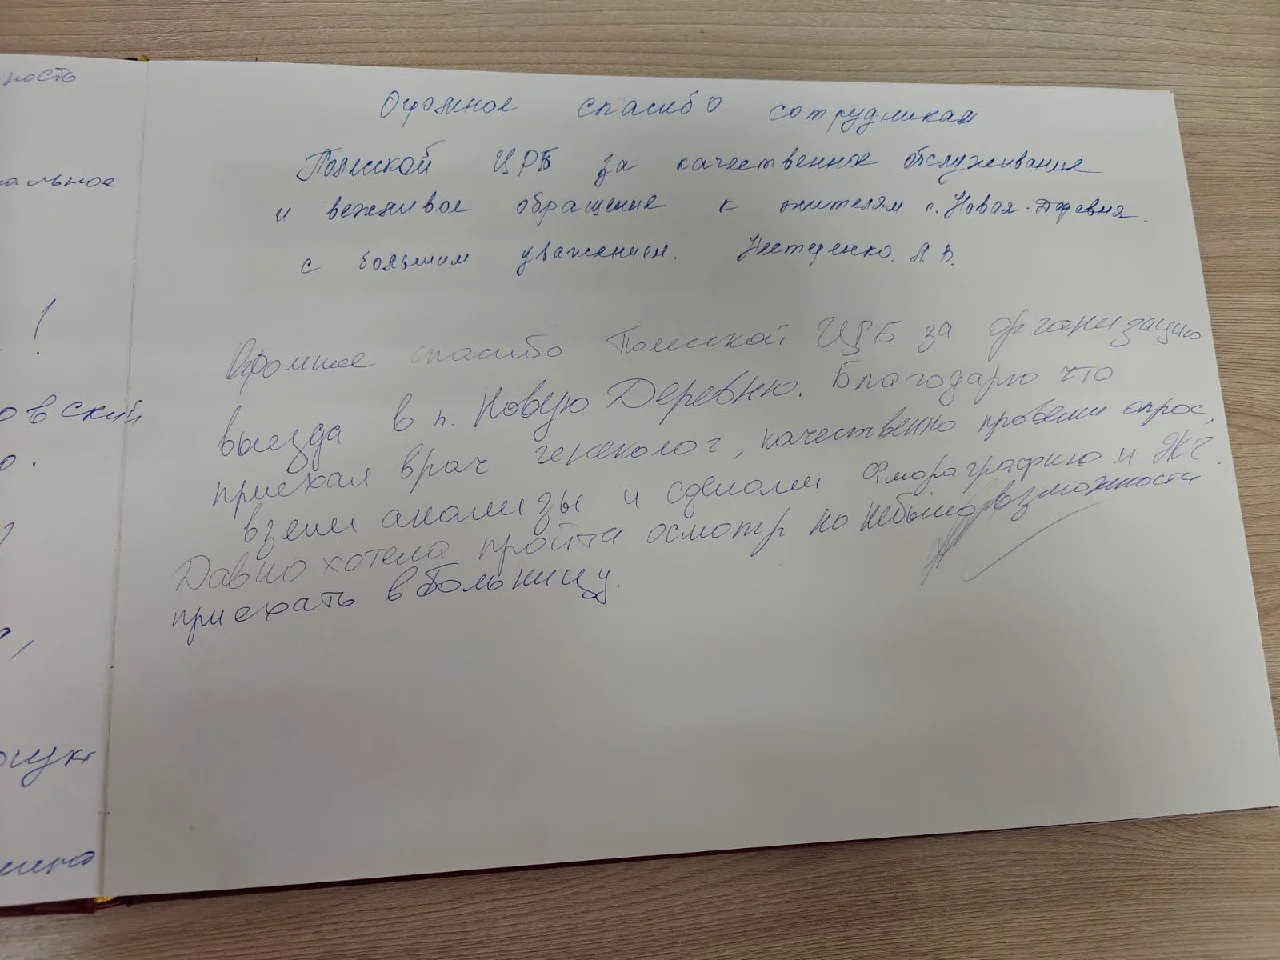 ность
альное
!
овский
о.
Огромное спасибо сотрудникам
Поимской ЦРБ за качественное обслуживание
и вежливое обращение к жителям п. Новая-Деревня.
с большим уважением. А В.
Огромное спасибо Поимской ЦРБ за организацию
выезда в п. Новую Деревню. Благодарю что
приехал врач генеколог, качественно провели опрос,
взяли анализы и сделали Флюраграфию и ЭКГ.
Давно хотела пройти осмотр но небыло возможности
приехать в больницу.